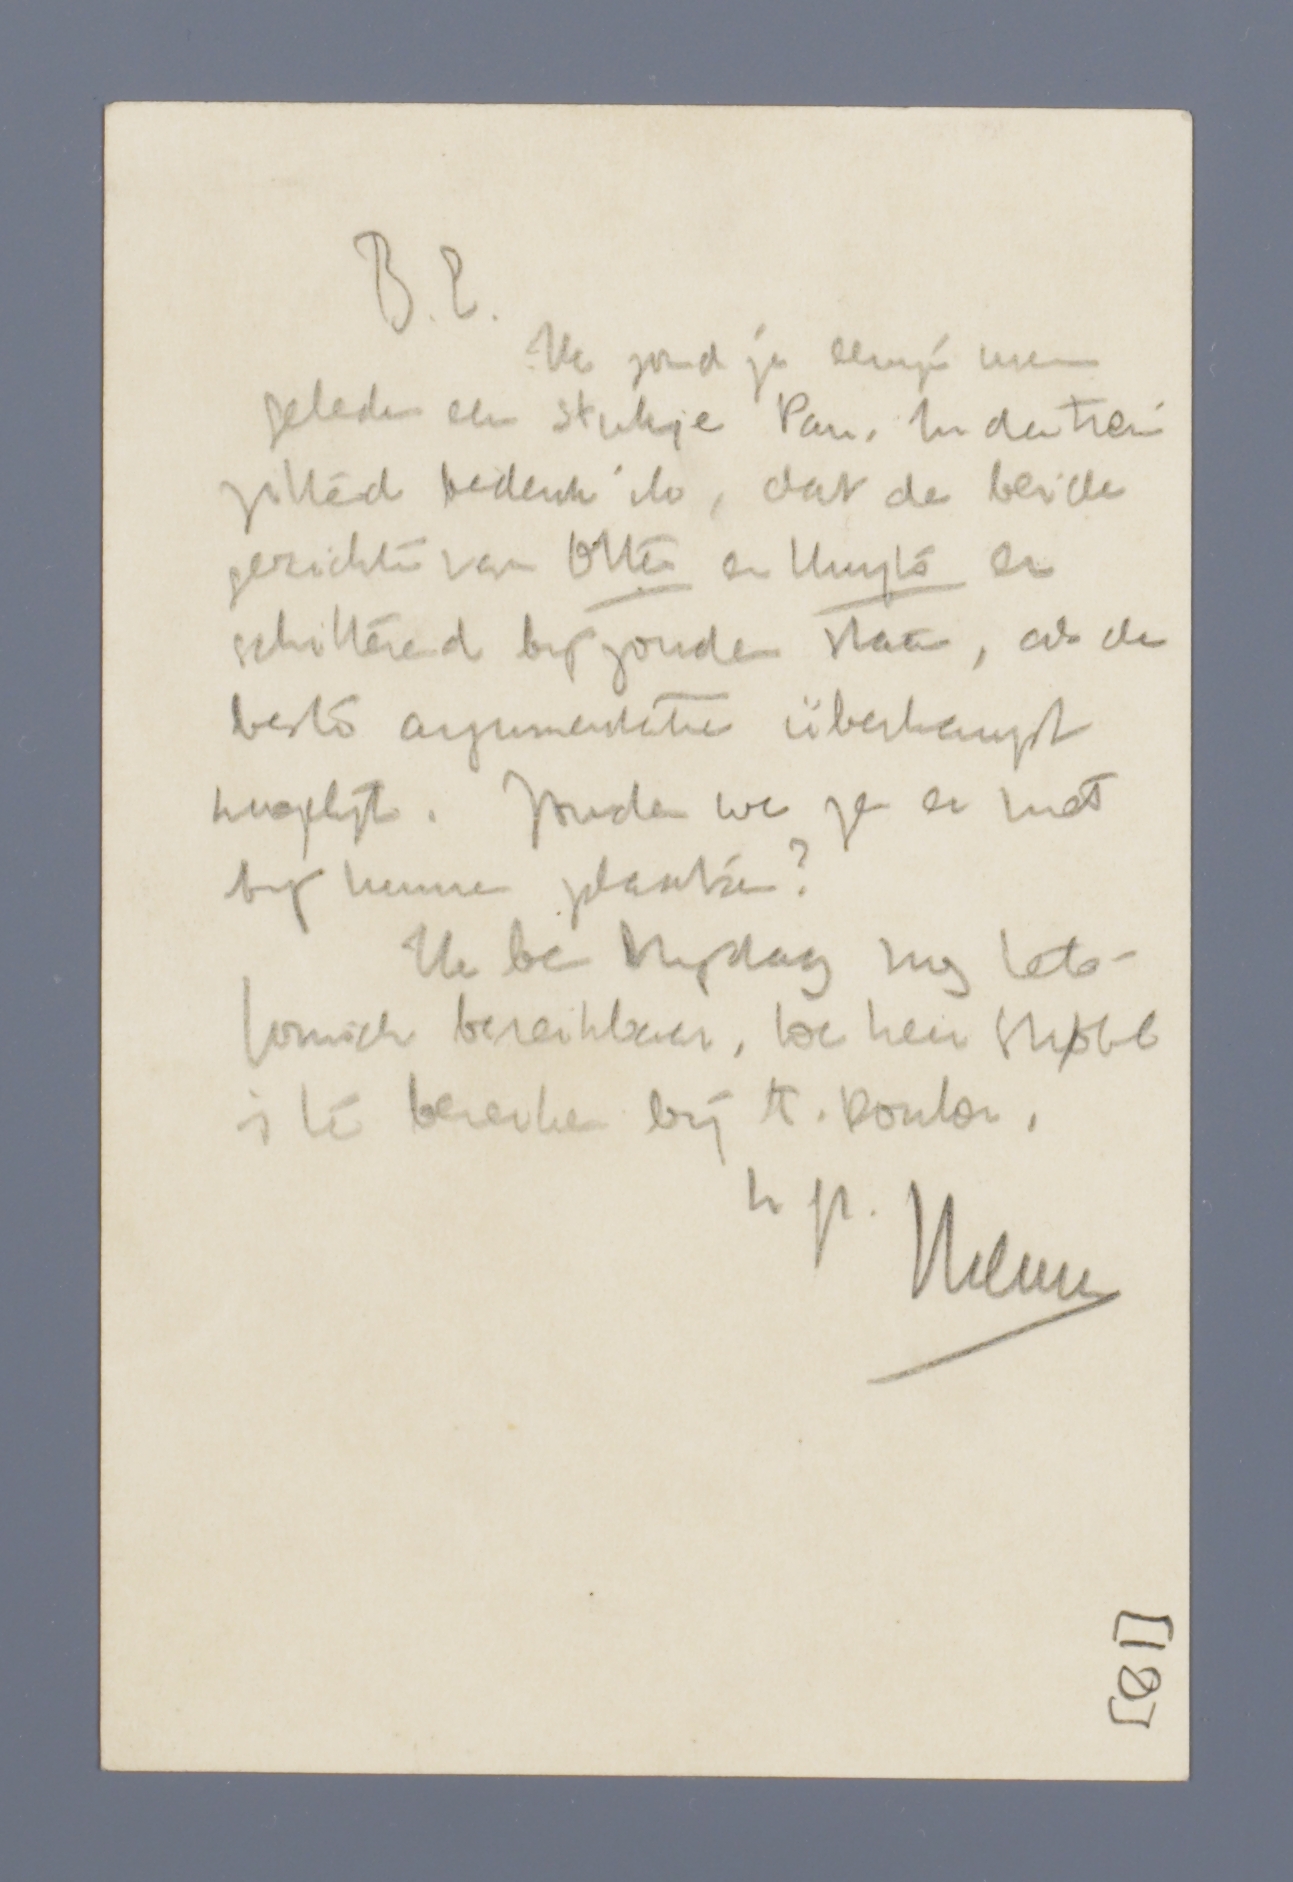 B. E.
Ik zond je eenige uren
geleden een stukje Pan. In den trein
zittend bedenk ik, dat de beide
gezichten van Otten en Kuyle er
schitterend bij zouden staan, als de
beste argumentatie überhaupt
mogelijk. Zouden we ze er niet
bij kunnen plaatsen?
Ik ben Vrijdag nog tele-
fonisch bereikbaar, toe hein
is te bereiken bij
h gr.
[18]